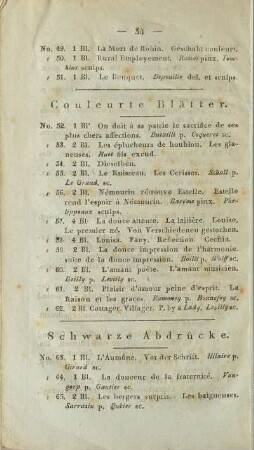 — 34 —
No. 49. 1 Bl. La Mort de Robin. Geschabt couleurt.
= 50. 1 Bl. Rural Employement. pinx.
sculps.
= 51. 1 Bl. Le Bouquet. Depeuille del. et sculps.
Couleurte Blätter.
No. 52. 1 Bl. On doit à sa patrie le sacrifice de ses
plus chers affections. Dutailli p. Coqueret sc.
= 53. 2 Bl. Les éplucheurs de houblon. Les gla-
neuses. Huet fils excud.
= 54. 2 Bl. Dieselben.
= 55. 2 Bl. Le Ruisseau. Les Cerises. Schall p.
Le Grand, sc.
= 56. 2 Bl. Némourin retrouve Estelle. Estelle
rend l'espoir à Némourin. pinx.
sculps.
= 57. 4 Bl. La douce attente. La litière. Louise.
Le premier né. Von Verschiedenen gestochen.
= 58. 4 Bl. Louisa. Fany. Reflection. Conflit.
= 59. 2 Bl. La douce impression de l'harmonie.
suite de la douce impression. Boilly p. Wolff sc.
= 60. 2 Bl. L'amant poète. L'amant musicien.
Boilly p. Levilly sc.
= 61. 2 Bl. Plaisir d'amour peine d'esprit. La
Raison et les graces. Ramoney p. Bonnefoy sc.
= 62. 2 Bl. Cottager. Villager. P. by a Lady,
Schwarze Abdrücke.
No. 63. 1 Bl. L'Aumône. Vor der Schrift. Hilaire p.
Girard sc.
= 64. 1 Bl. La douceur de la fraternité. Van-
gorp p. Gautier sc.
= 65. 2 Bl. Les bergers surpris. Les baigneuses.
Sarrasin p. sc.